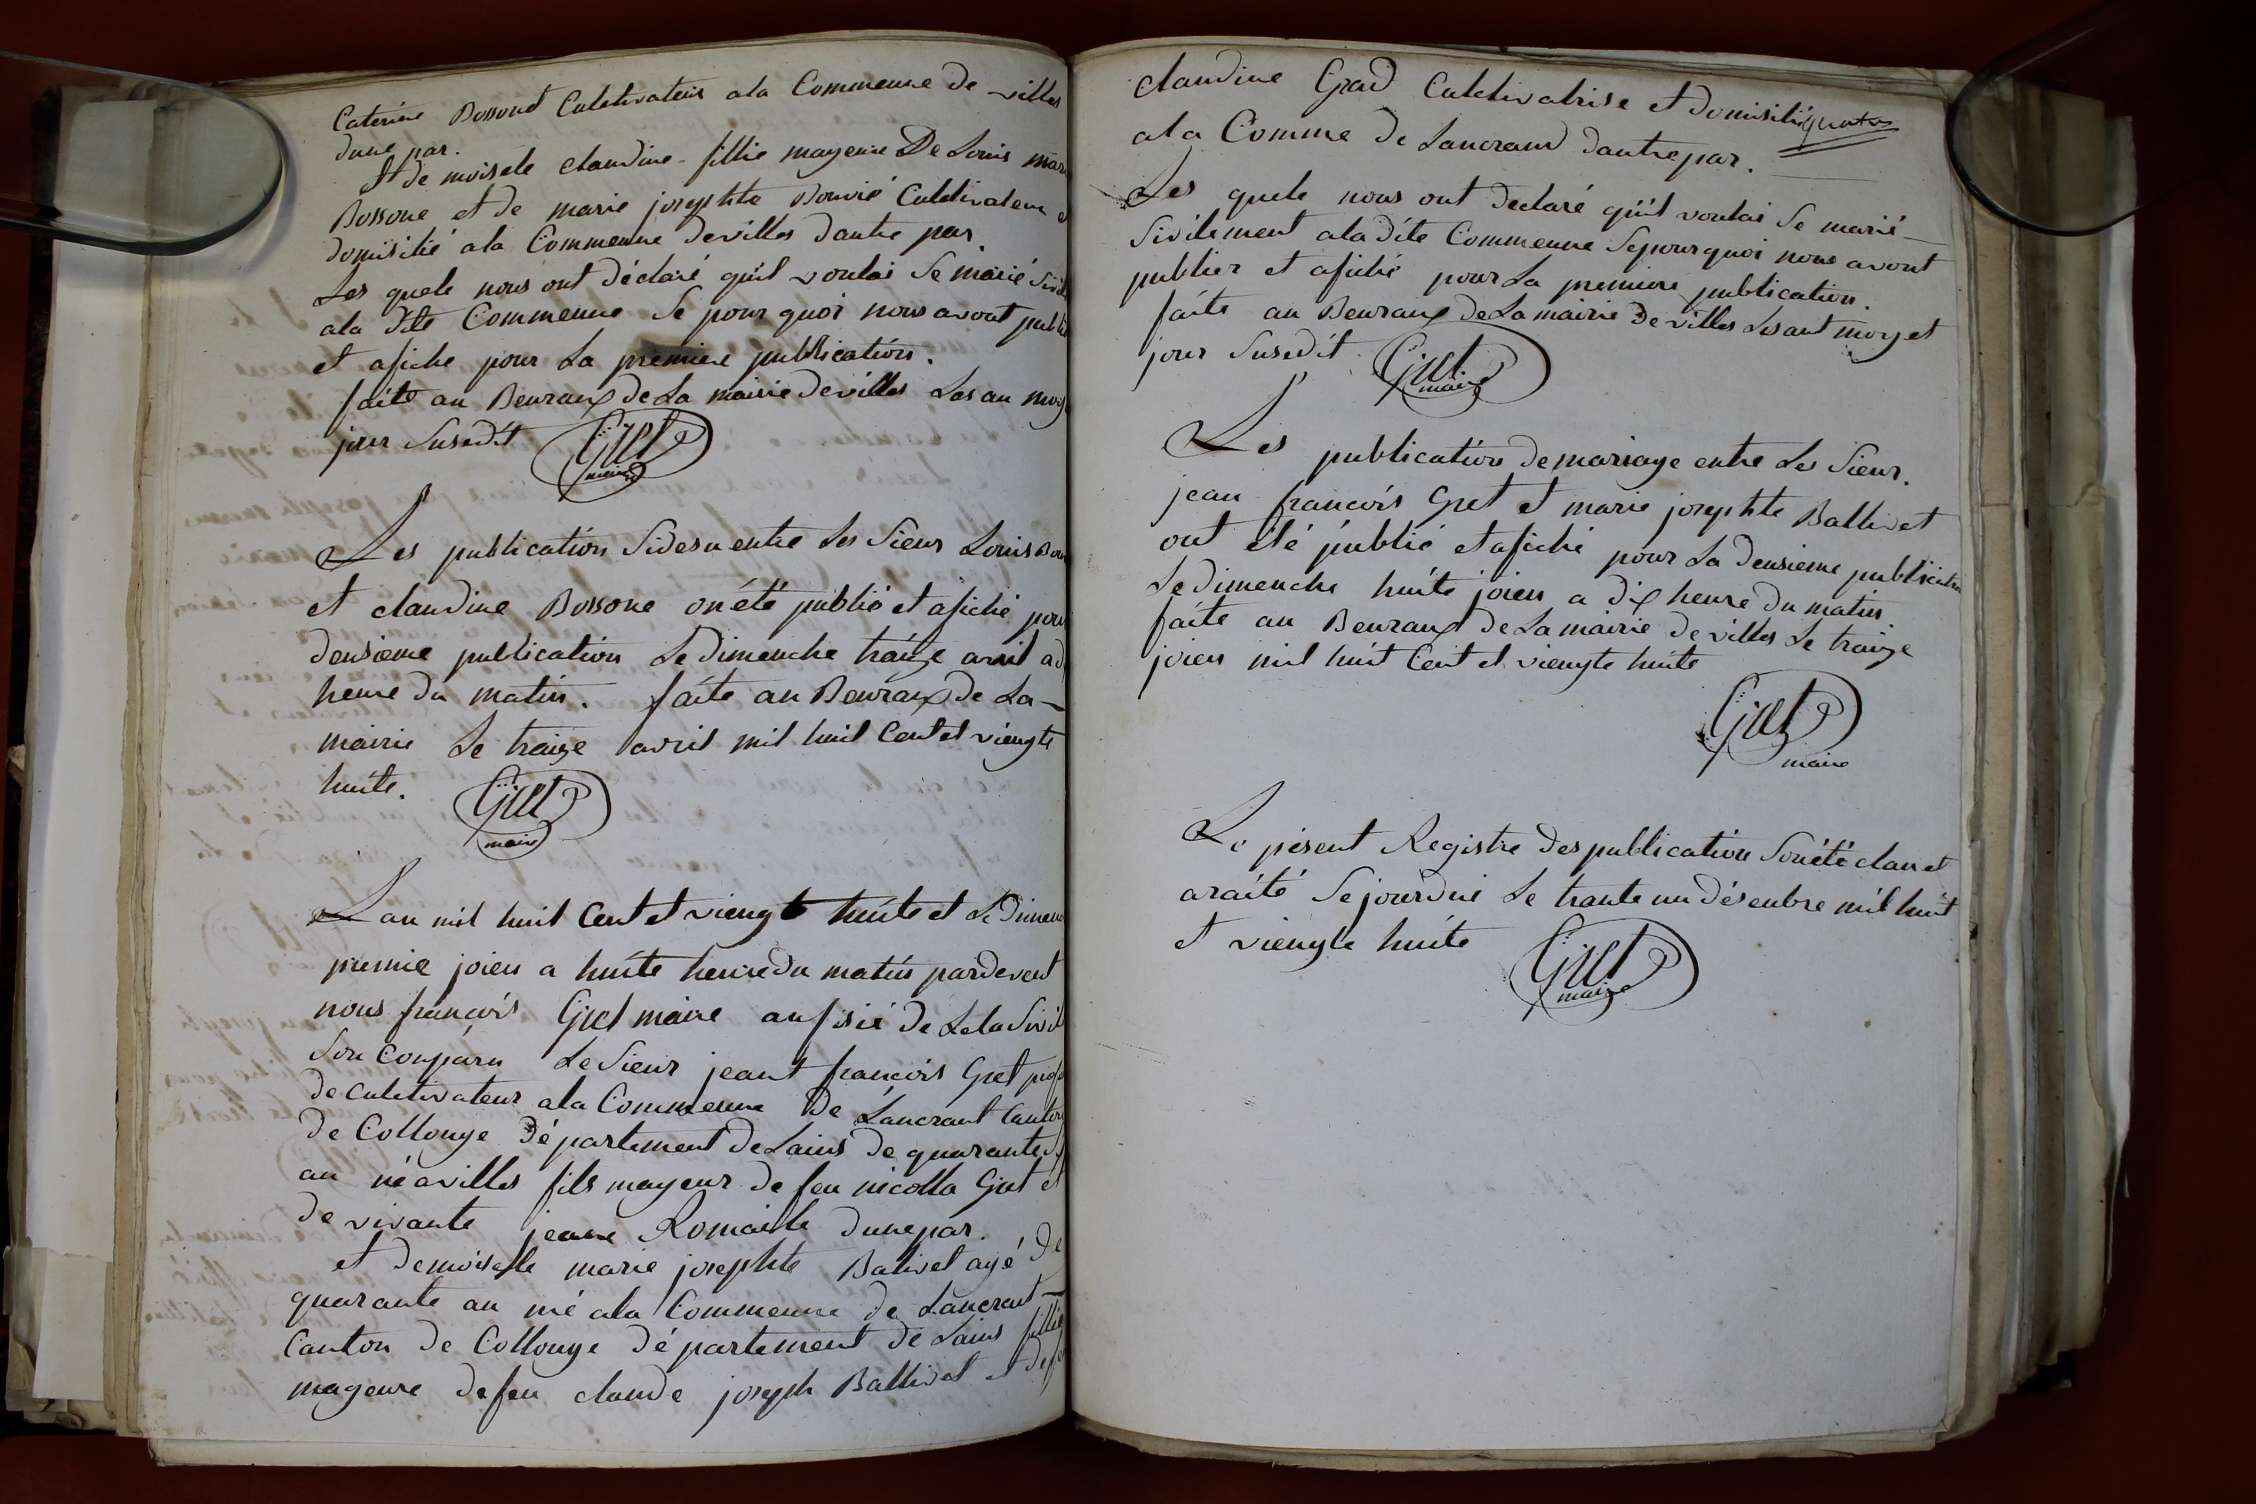 Caterine Bossond Culdivateur ala Commeune de villes
dune par.
Et de moisele claudine fillie mayeure De Louis mar
Bossone et de marie josephte Bouvié Culdivateur e
domisilié ala Commeune devilles dautre par.
Les quele nous ont déclaré quil voulai Se marié Sivile
ala dite Commeune Se pour quoi nous avont publié
et afiche pour La premiere publication.
faite au Beuraux de La mairie devilles Les au moy
jour Susedit Gret
maire
Les publication Sidesu entre Les Sieur Louis
et claudine Bossone on été publié et afiché pour
deusieme publication Le Dimenche traize avril a
heure du matin. faite au Beuraux de La
mairie Le traize avril mil huit Cent et viengte
huite. Gret
maire
Lan mil huit Cent et viengte huite et Le Dimen
premie joien a huite heure du matin pardevent
nous francois Gret maire aufisié de Leta Sivil
Son Conparu Le Sieur jeant francois Gret prof
de culdivateur ala Commeune de Lancrant Canton
de Collonge département de Lains de quarante
an né avilles fils mayeur de feu nicolla Gret et
de vivante jeane Romaille dune par.
et demoiselle marie josephte Balivet agé de
quarante an né ala Commeune de Lancrant
Canton de Collonge département de Lains fillie
mageure defeu claude joseph Ballivet et de
claudine Grad Culdivatrise et domisilié quatre
ala Comme de Lancrand dautrepar.
Les quele nous ont declaré quil voulai Se marié
Sivilement ala dite Commeune Sepourquoi nous avont
publier et afiché pour La premiere publication.
faite au Beuraux de La mairie de villes Lesant moy et
jour Susedit Gret
maire
Les publication demariage entre Les Sieur.
jean francois Gret et marie josephte Ballivet
ont été publié et afiché pour La deusieme publication
Le dimenche huite joien a dix heure du matin.
faite au Beuraux de La mairie de villes Le traize
joien mil huit Cent et viengte huite
Gret
maire
Le présent Registre des publication Son été clau et
araité Sejourdui Le trante un désenbre mil huit
et viengte huite Gret
maire